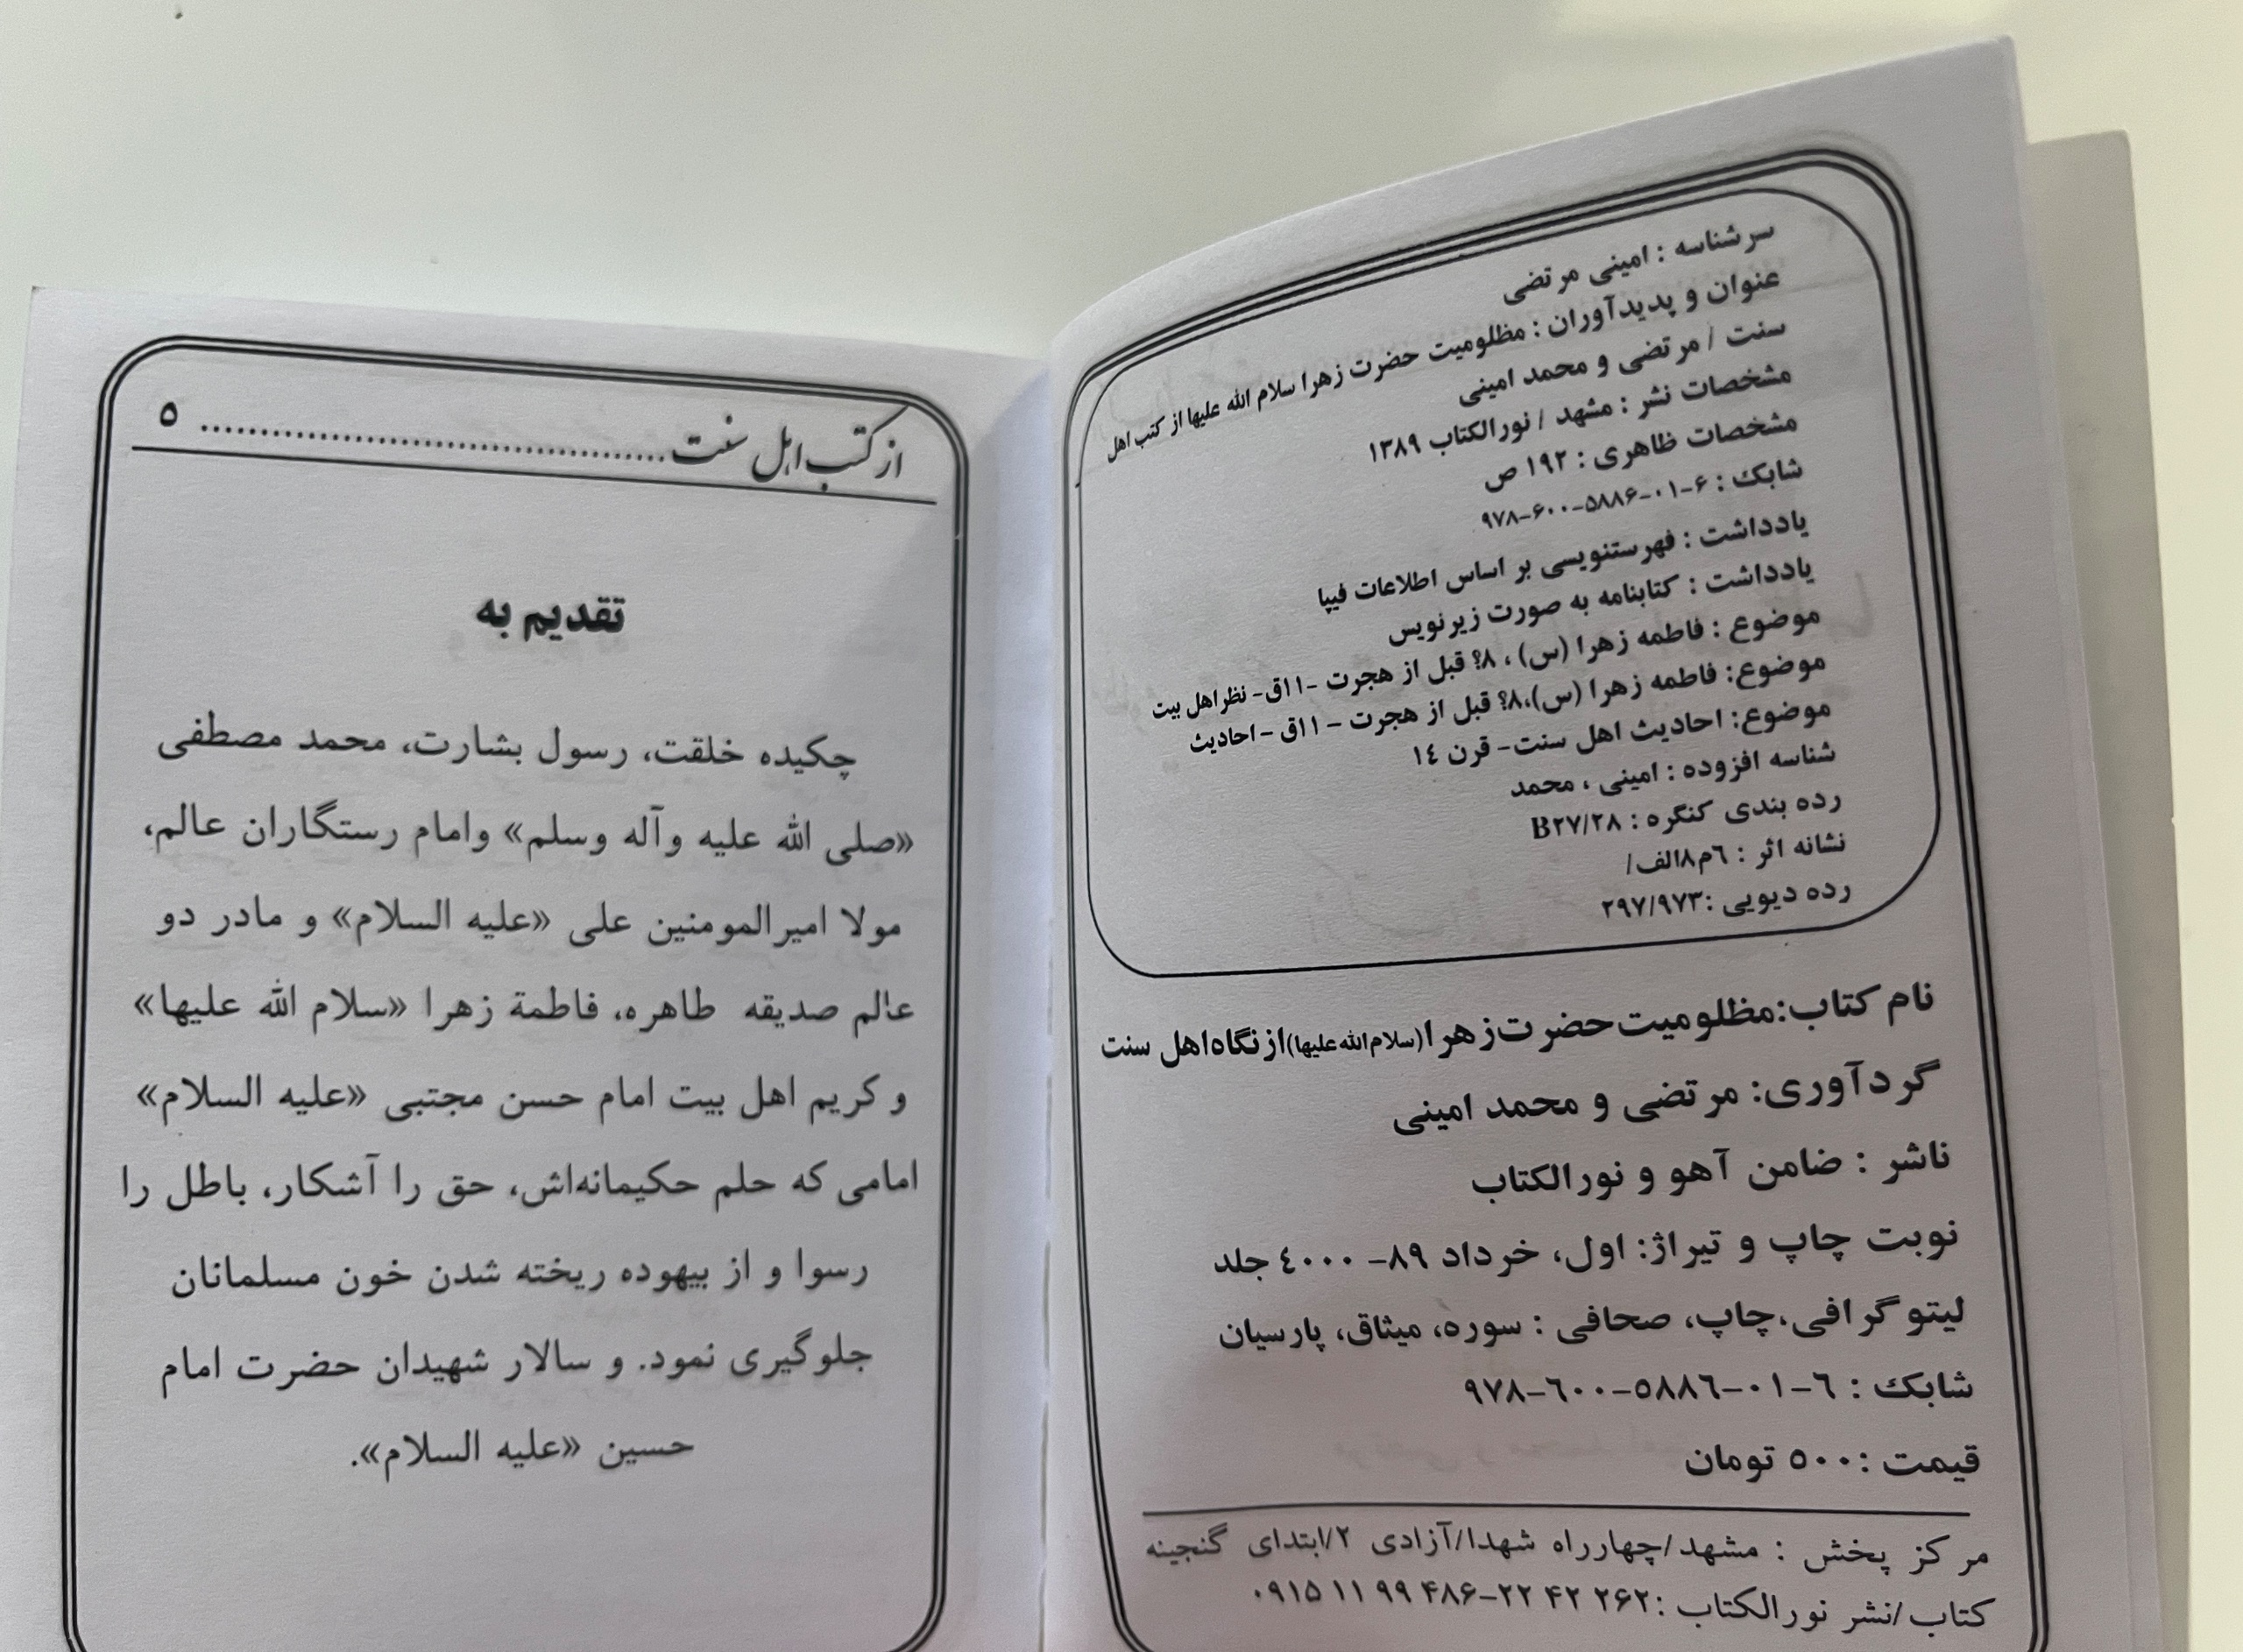 سرشناسه : امینی مرتضی
عنوان و پدیدآوران : مظلومیت حضرت زهرا سلام الله علیها از کتب اهل
سنت / مرتضی و محمد امینی
مشخصات نشر : مشهد / نورالکتاب ۱۳۸۹
مشخصات ظاهری : ۱۹۲ ص
شابک : ۶-۰۱-۵۸۸۶-۶۰۰-۹۷۸
یادداشت : فهرستنویسی بر اساس اطلاعات فیپا
یادداشت : کتابنامه به صورت زیرنویس
موضوع : فاطمه زهرا (س) ، ۸؟ قبل از هجرت -۱۱ق- نظر اهل بیت
موضوع: فاطمه زهرا (س)،۸؟ قبل از هجرت - ۱۱ق -احادیث
موضوع: احادیث اهل سنت- قرن ۱٤
شناسه افزوده : امینی ، محمد
رده بندی کنگره : B۲۷/۲۸
نشانه اثر : ٦م۸الف/
رده دیویی :۲۹۷/۹۷۳
نام کتاب:مظلومیت حضرت زهرا(سلام الله علیها)از نگاه اهل سنت
گردآوری: مرتضی و محمد امینی
ناشر : ضامن آهو و نورالکتاب
نوبت چاپ و تیراژ: اول، خرداد ۸۹- ٤۰۰۰ جلد
لیتوگرافی،چاپ، صحافی : سوره، میثاق، پارسیان
شابک : ٦-۰۱-۵۸۸٦-٦۰۰-۹۷۸
قیمت :۵۰۰ تومان
مرکز پخش : مشهد/چهارراه شهدا/آزادی ۲/ابتدای گنجینه
کتاب/نشر نورالکتاب :۲۶۲ ۴۲ ۲۲-۴۸۶ ۹۹ ۱۱ ۰۹۱۵
از کتب اهل سنت .......................................... ۵
تقدیم به
چکیده خلقت، رسول بشارت، محمد مصطفی
«صلی الله علیه وآله وسلم» وامام رستگاران عالم،
مولا امیرالمومنین علی «علیه السلام» و مادر دو
عالم صدیقه طاهره، فاطمة زهرا «سلام الله علیها»
و کریم اهل بیت امام حسن مجتبی «علیه السلام»
امامی که حلم حکیمانه‌اش، حق را آشکار، باطل را
رسوا و از بیهوده ریخته شدن خون مسلمانان
جلوگیری نمود. و سالار شهیدان حضرت امام
حسین «علیه السلام».